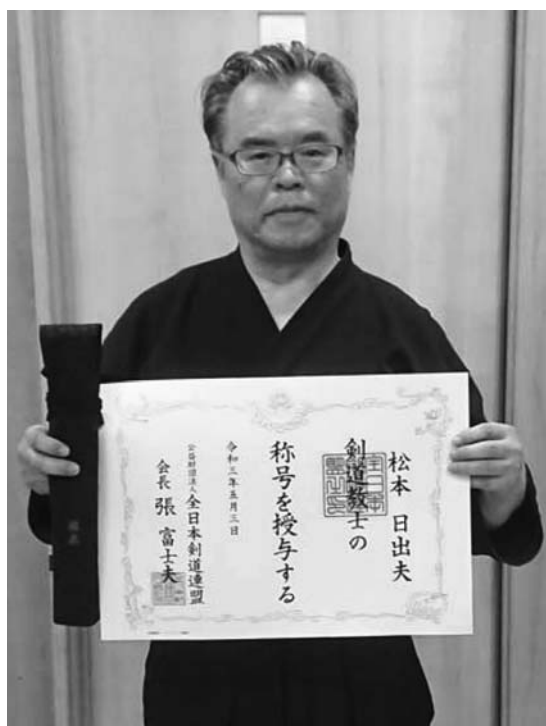 松本 日出夫
剣道教士の
称号を授与する
令和三年五月三日
公益財団法人 全日本剣道連盟
会長 張 富士夫